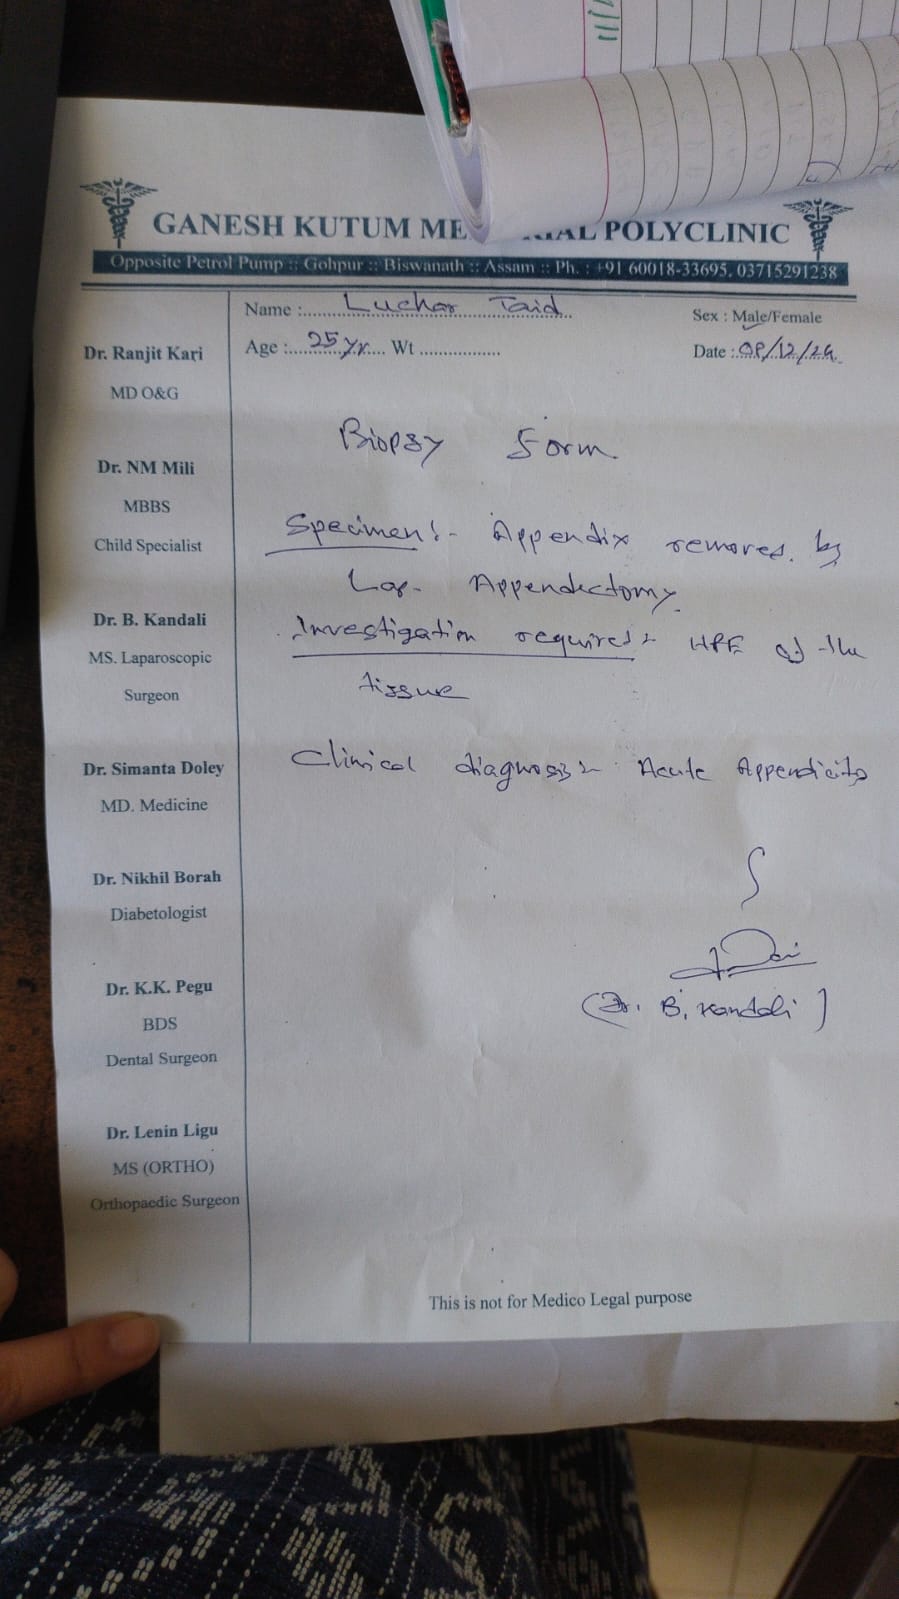 GANESH KUTUM ME RIAL POLYCLINIC
Opposite Petrol Pump :: Gohpur :: Biswanath :: Assam :: Ph. : +91 60018-33695, 03715291238
Name :.... Luchar Taid
Sex : Male/Female
Age :.... 25 yr. Wt ................
Date : 08/12/24
Dr. Ranjit Kari
MD O&G
Dr. NM Mili
MBBS
Child Specialist
Dr. B. Kandali
MS. Laparoscopic
Surgeon
Dr. Simanta Doley
MD. Medicine
Dr. Nikhil Borah
Diabetologist
Dr. K.K. Pegu
BDS
Dental Surgeon
Dr. Lenin Ligu
MS (ORTHO)
Orthopaedic Surgeon
Biopsy Form
Specimen:- Appendix removed by
Lap. Appendectomy.
Investigation required:- HPE of the
tissue
Clinical diagnosis:- Acute Appendicitis
(Dr. B. Kandali)
This is not for Medico Legal purpose